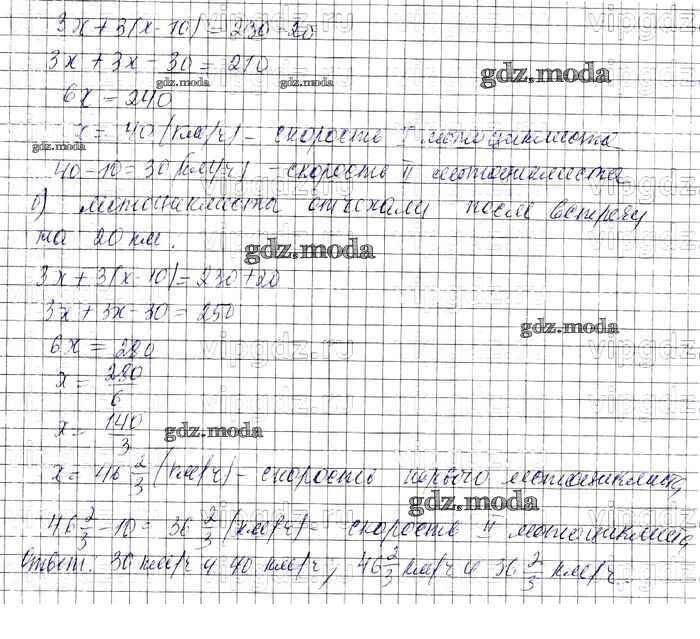 3x + 3(x - 10) = 230 - 20
3x + 3x - 30 = 210
gdz.moda
gdz.moda gdz.moda
6x = 240
x = 40 (км/ч) - скорость I мотоциклиста
gdz.moda
40 - 10 = 30 (км/ч) - скорость II мотоциклиста
б) мотоциклиста отъехали после встречи
на 20 км.
gdz.moda
3x + 3(x - 10) = 230 + 20
3x + 3x - 30 = 250
gdz.moda
6x = 280
vipgdz.ru
x = 280/6
x = 140/3
gdz.moda
x = 46 2/3 (км/ч) - скорость первого мотоциклиста
gdz.moda
46 2/3 - 10 = 36 2/3 (км/ч) - скорость II мотоциклиста
Ответ. 30 км/ч и 40 км/ч, 46 2/3 км/ч и 36 2/3 км/ч.